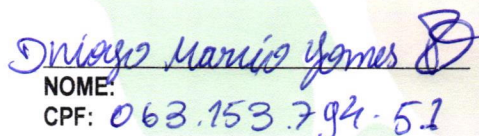 Dniogo Marcio Gomes
NOME:
CPF: 063.153.794-51